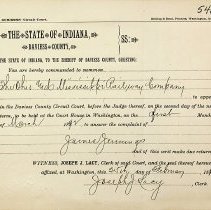 54
THE STATE OF INDIANA,
DAVIESS COUNTY,
SS:
THE STATE OF INDIANA, TO THE SHERIFF OF DAVIESS COUNTY, GREETING:
You are hereby commanded to summon
Ohio and Mississippi Railway Company
in the Daviess County Circuit Court, before the Judge thereof, on the second day of the
to be held at the Court House in Washington, on the first
March 189 to answer the complaint of
James
and of this writ make due return.
WITNESS, JOSEPH J. LACY, Clerk of said Court, and the seal thereof hereto
affixed, at Washington, this day of February 189
Joseph J Lacy
Clerk